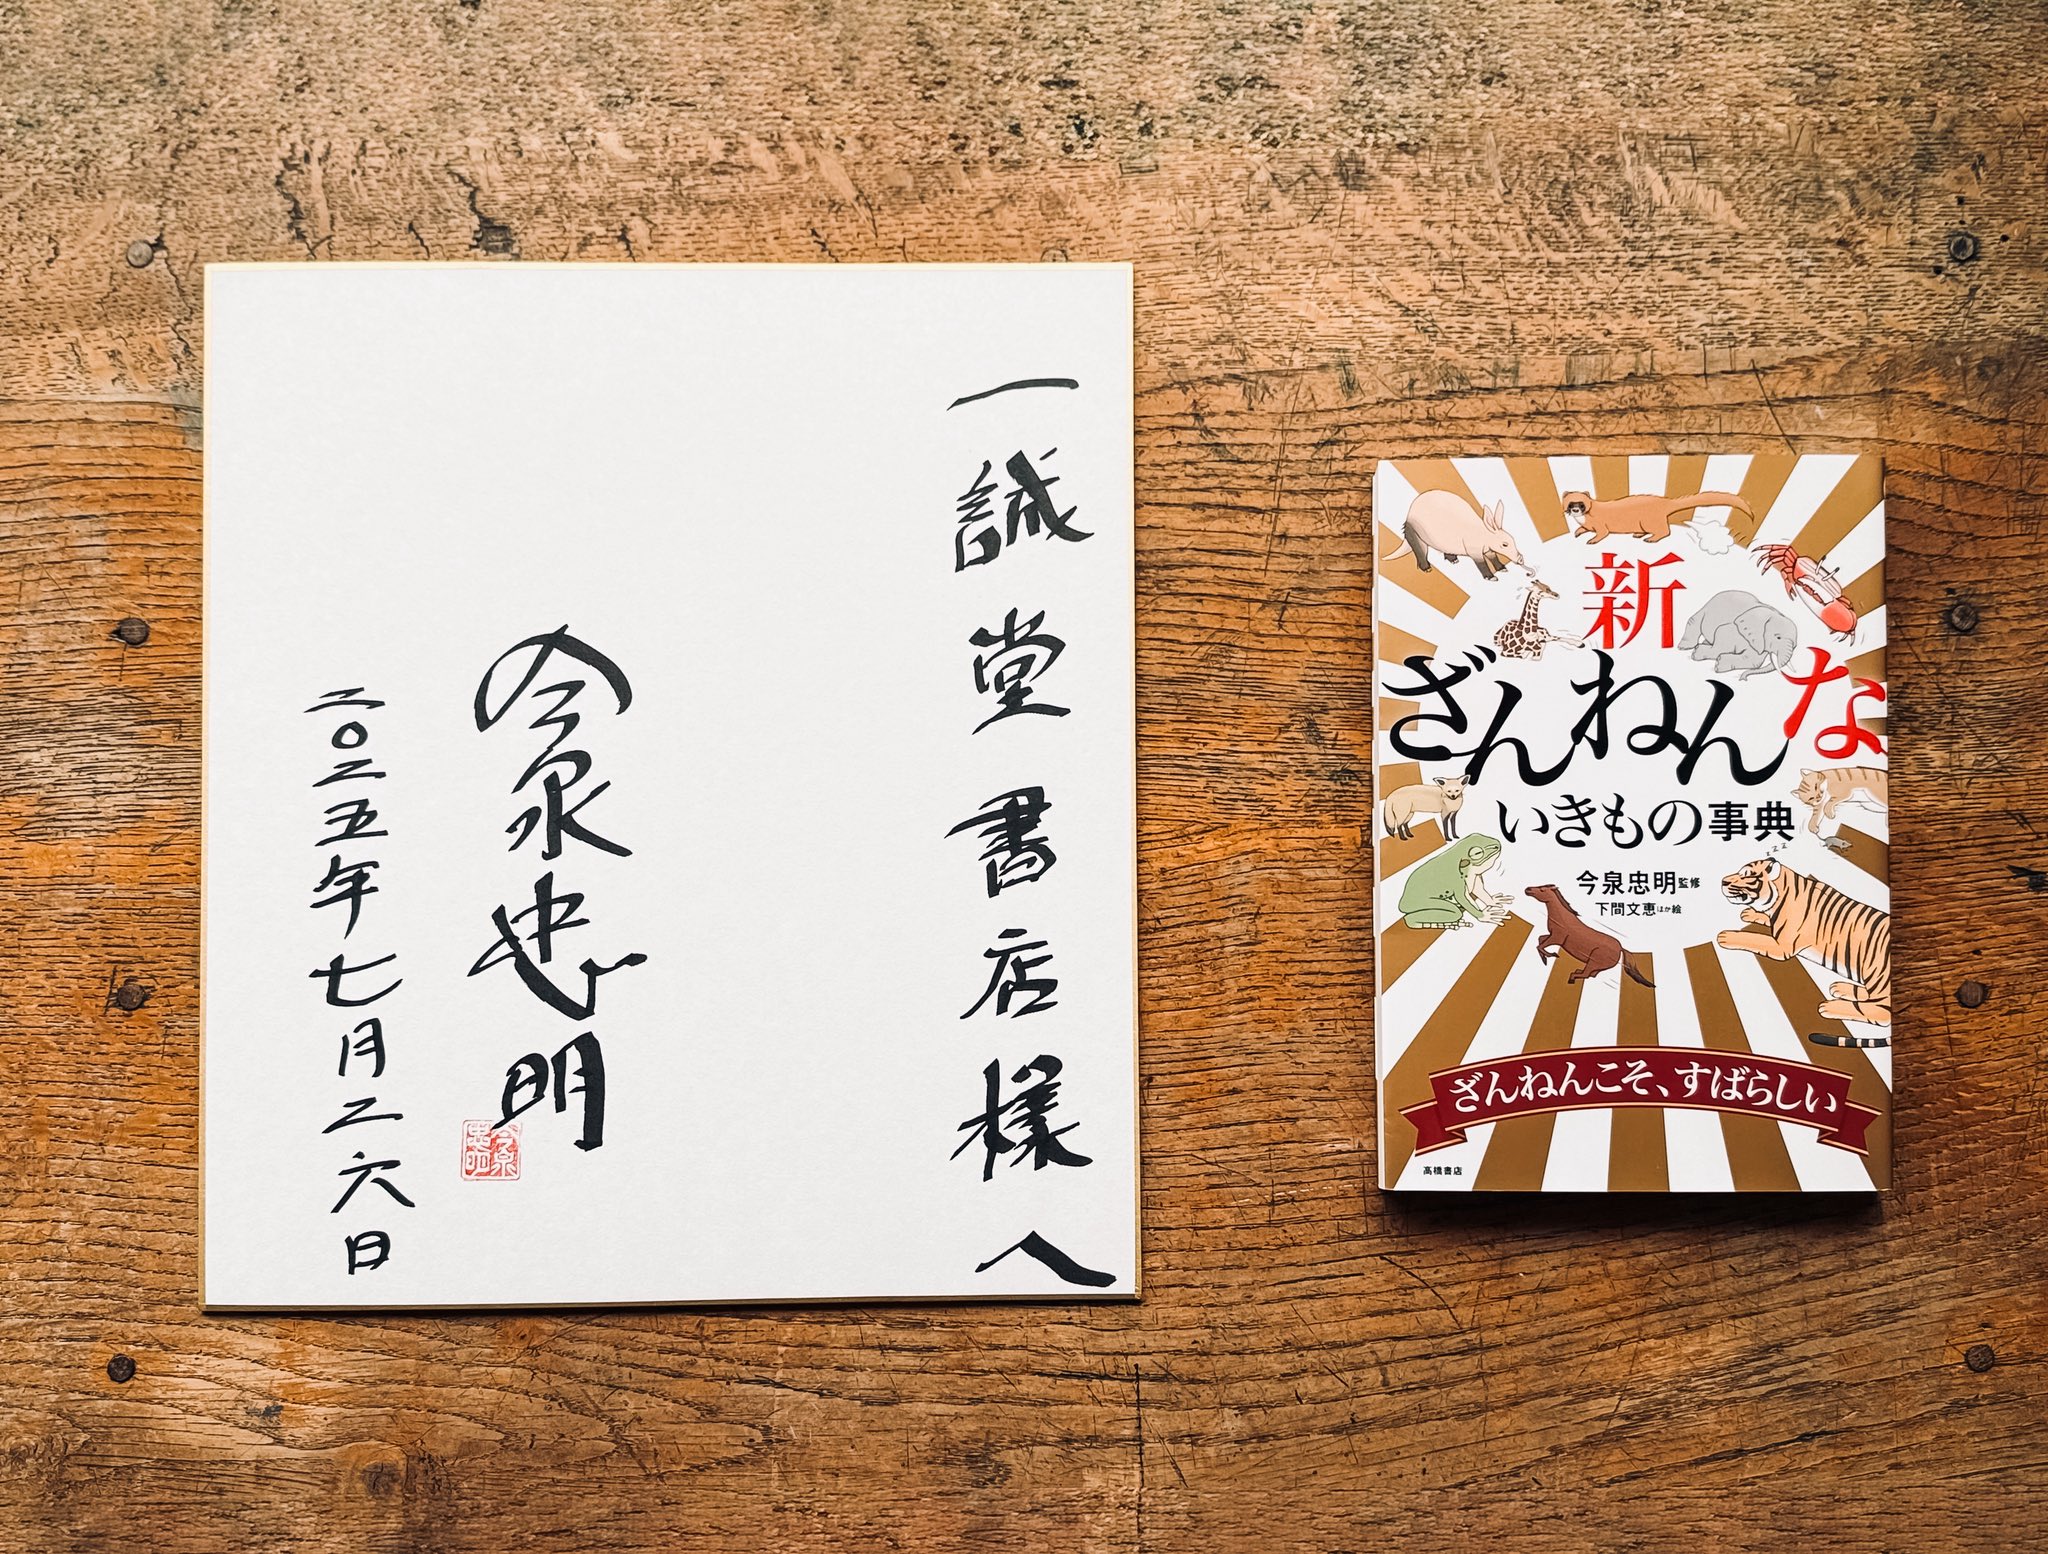 一誠堂書店様へ
今泉忠明
二〇二五年七月二六日
今泉忠明
新
ざんねんな
いきもの事典
今泉忠明監修
下間文恵ほか絵
zzz
ざんねんこそ、すばらしい
高橋書店